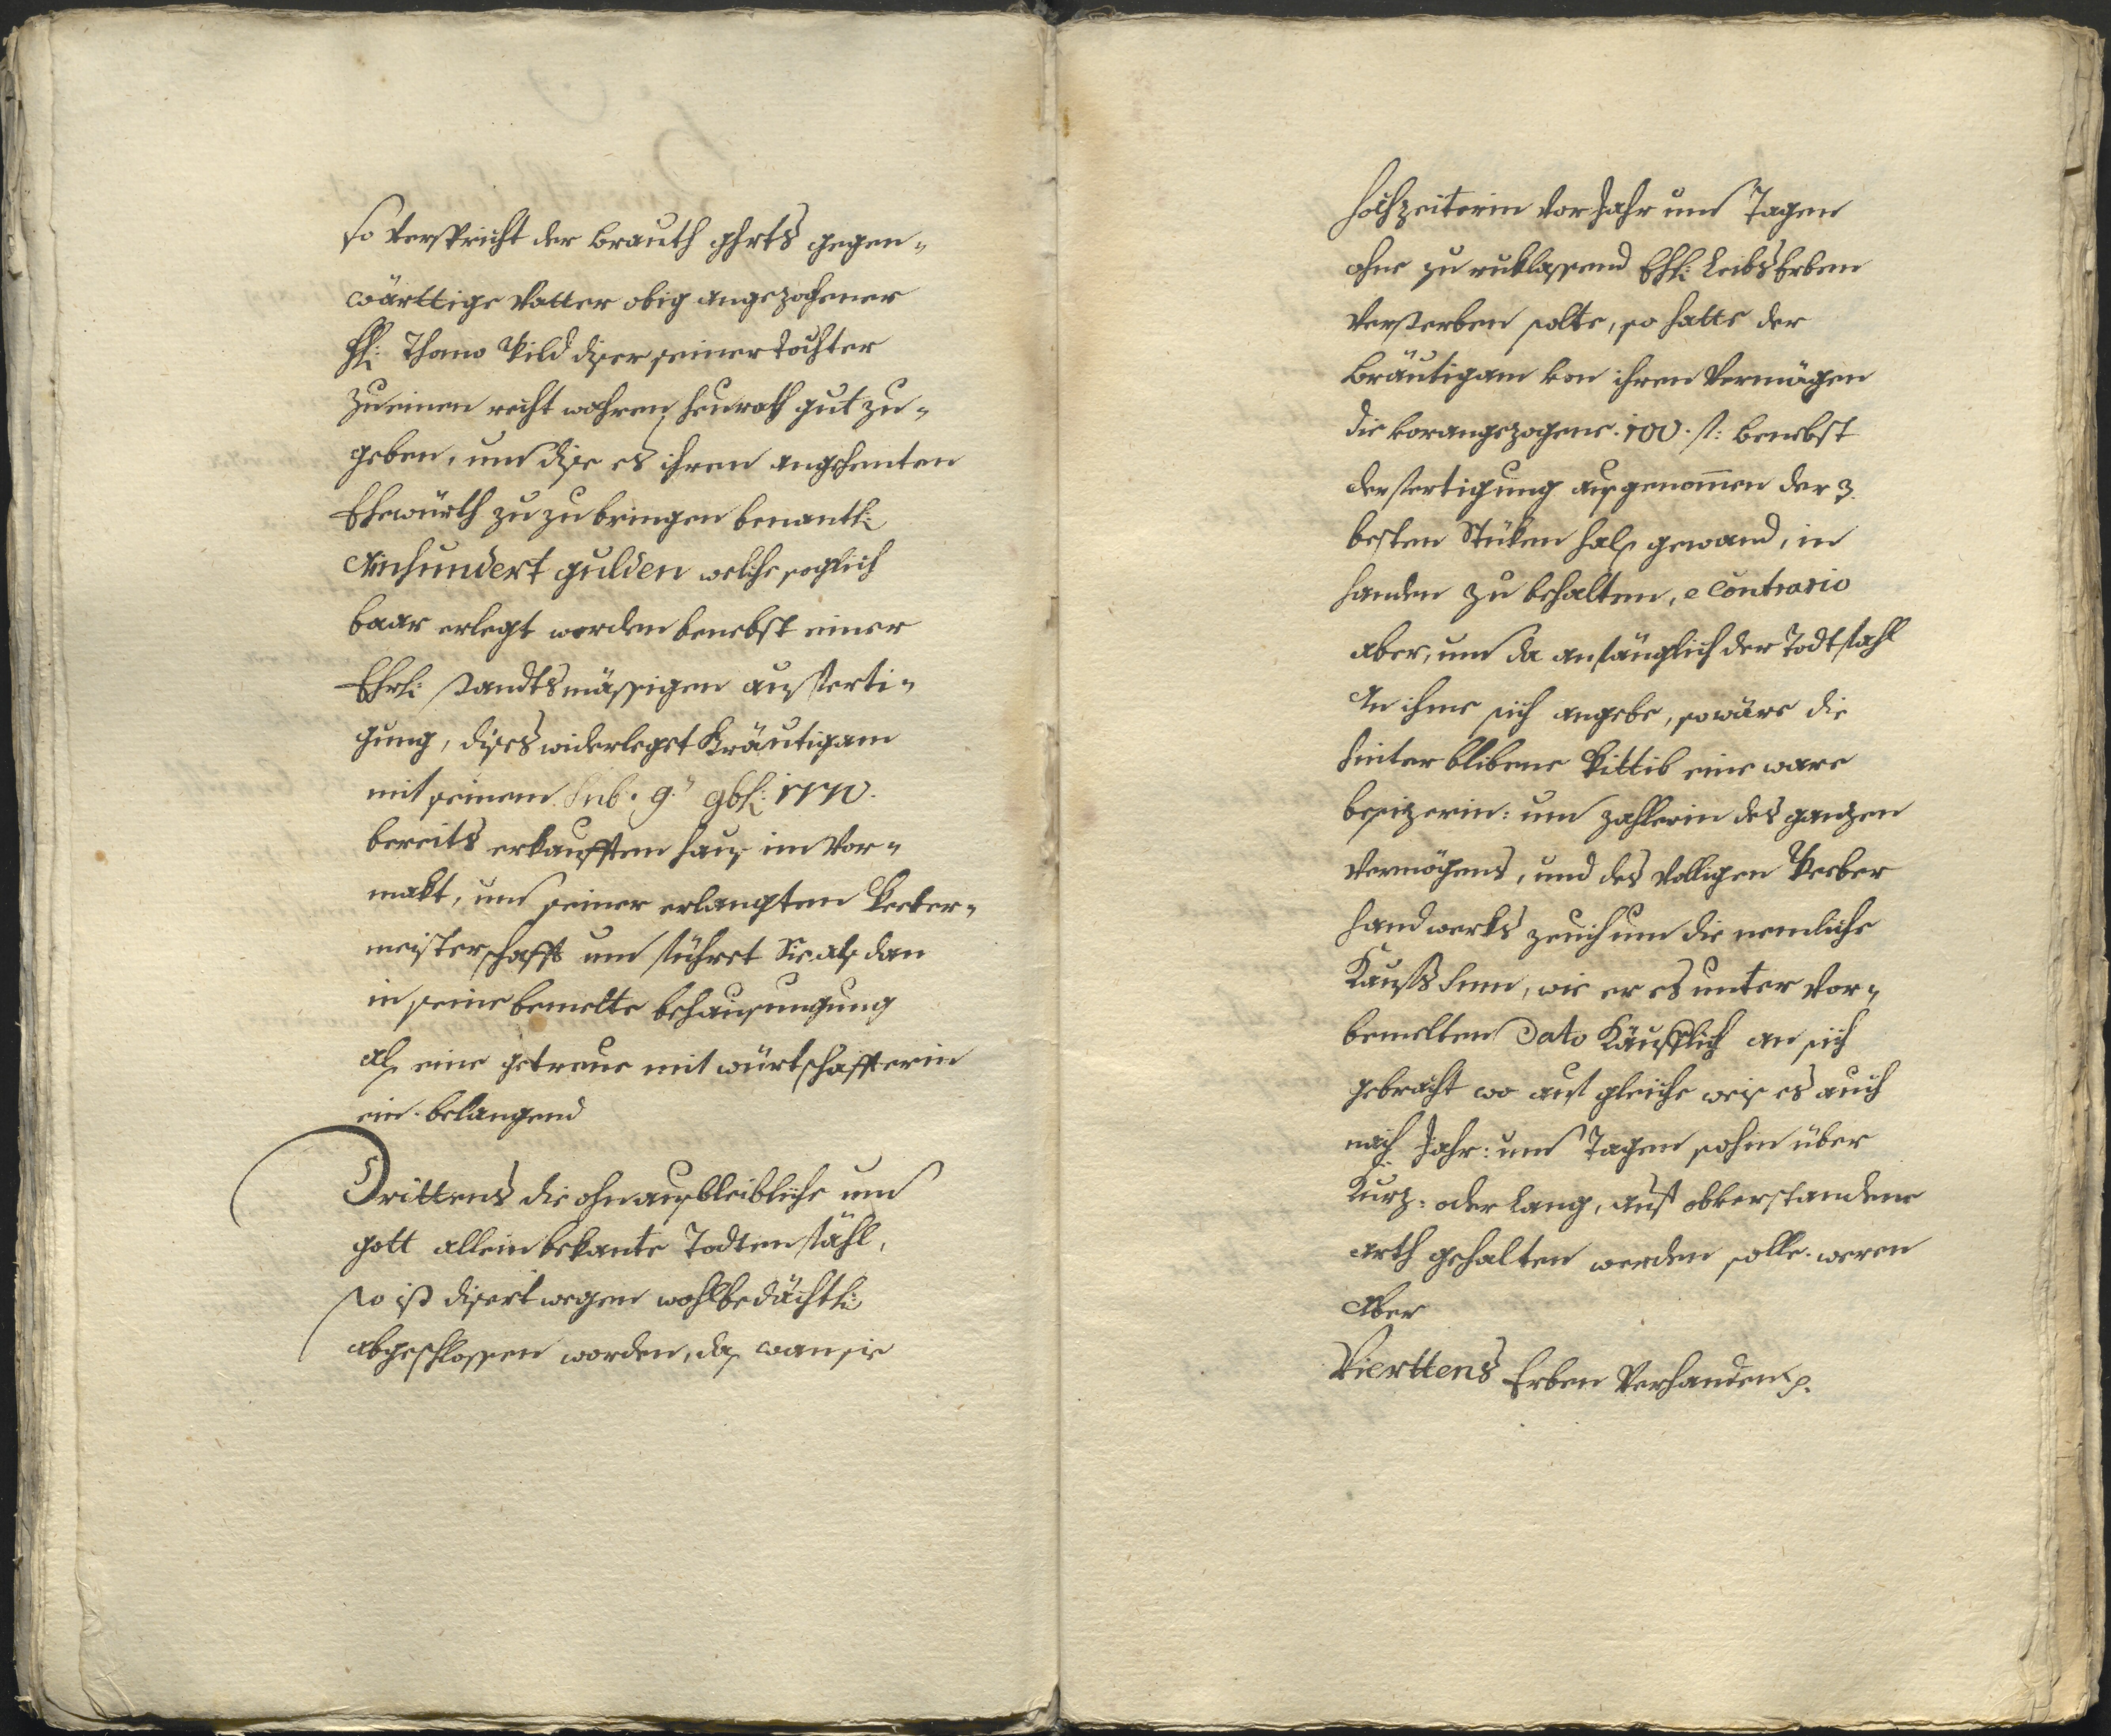 so verspricht der brauth ghrts gegen-
wärttige Vatter obig angezochener
Thomo Pild diser seiner dochter
zu einen recht wahren heurath gut zu-
geben, um dise es ihren angehenten
Ehewürth zu zu bringen benantl:
Ainhundert gulden welche soglich
baar erlegt worden benebst einer
Ehrl: standtsmässigen ausferti-
gung, dises widerleget Bräutigam
mit seinem Sub. 9.
bereits erkaufften haus im Vor-
makt, um seiner erlangten
meisterschafft um führet Sie als dan
in seine bemelte behausungung
als eine getreue mit würtschafferin
ein. belangend
Drittens die ohnausbleibliche um
gott allein bekante Todtenfähl,
so ist disert wegen wohlbedächtl:
abgeschlossen worden, das wan sie
hochzeiterin vor Jahr um Tagen
ohne zu ruklassend Ehl: Leibs Erben
versterben solte, so hatte der
Bräutigam von ihren Vermägen
die vorangezogene 100 f: benebst
der fertigung ausgenommen der 3.
besten Stüken hals gewand, in
handen zu behalten, e contrario
aber, um da anfänglich der Todtfahl
An ihme sich angebe, so wäre die
hinter blibene Wittib eine ware
besizerin: um zahlerin des ganzen
Vermögens, und des völligen Weber
handwerks zeuch um die nemliche
Kaufs Sum, wie er es unter vor-
bemelten Dato Käufflich an sich
gebracht wo auf gleiche weis es auch
nach Jahr: um Tagen sohin über
Kurz: oder lang, auf obverstandene
arth gehalten werden solle. weren
Aber
Vierttens Erben Verhanden p.